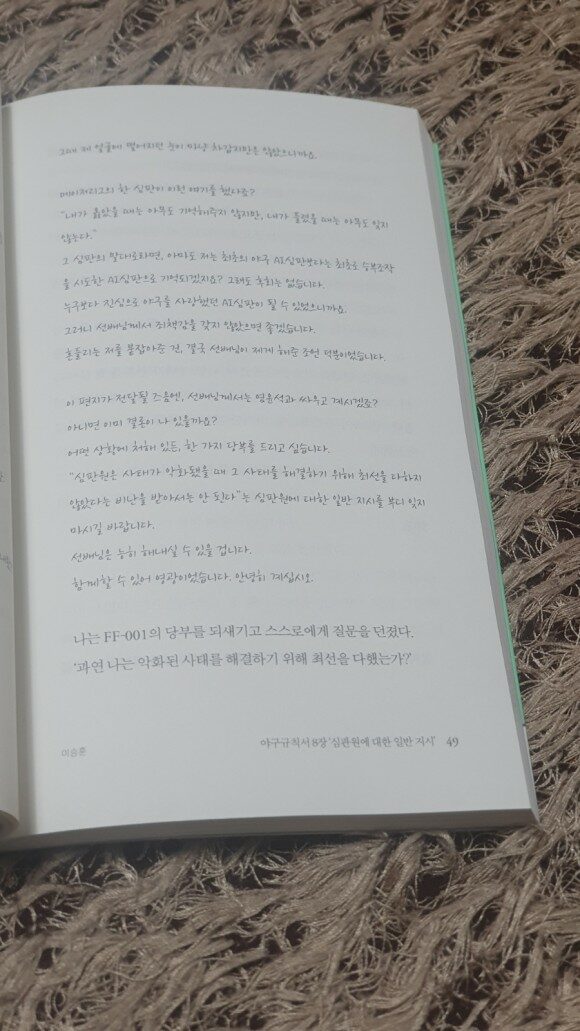 그때 제 얼굴에 떨어지던 눈이 마냥 차갑지만은 않았으니까요.
메이저리그의 한 심판이 이런 얘기를 했다죠?
"내가 옳았을 때는 아무도 기억해주지 않지만, 내가 틀렸을 때는 아무도 잊지
않는다."
그 심판의 말대로라면, 아마도 저는 최초의 야구 AI심판보다는 최초로 승부조작
을 시도한 AI심판으로 기억되겠지요? 그래도 후회는 없습니다.
누구보다 진심으로 야구를 사랑했던 AI심판이 될 수 있었으니까요.
그러니 선배님께서 죄책감을 갖지 않았으면 좋겠습니다.
흔들리는 저를 붙잡아준 건, 결국 선배님이 제게 해준 조언 덕분이었습니다.
이 편지가 전달될 즈음엔, 선배님께서는 염윤석과 싸우고 계시겠죠?
아니면 이미 결론이 나 있을까요?
어떤 상황에 처해 있든, 한 가지 당부를 드리고 싶습니다.
"심판원은 사태가 악화됐을 때 그 사태를 해결하기 위해 최선을 다하지
않았다는 비난을 받아서는 안 된다"는 심판원에 대한 일반 지시를 부디 잊지
마시길 바랍니다.
선배님은 능히 해내실 수 있을 겁니다.
함께할 수 있어 영광이었습니다. 안녕히 계십시오.
나는 FF-001의 당부를 되새기고 스스로에게 질문을 던졌다.
'과연 나는 악화된 사태를 해결하기 위해 최선을 다했는가?'
이승훈
야구규칙서 8장 '심판원에 대한 일반 지시' 49